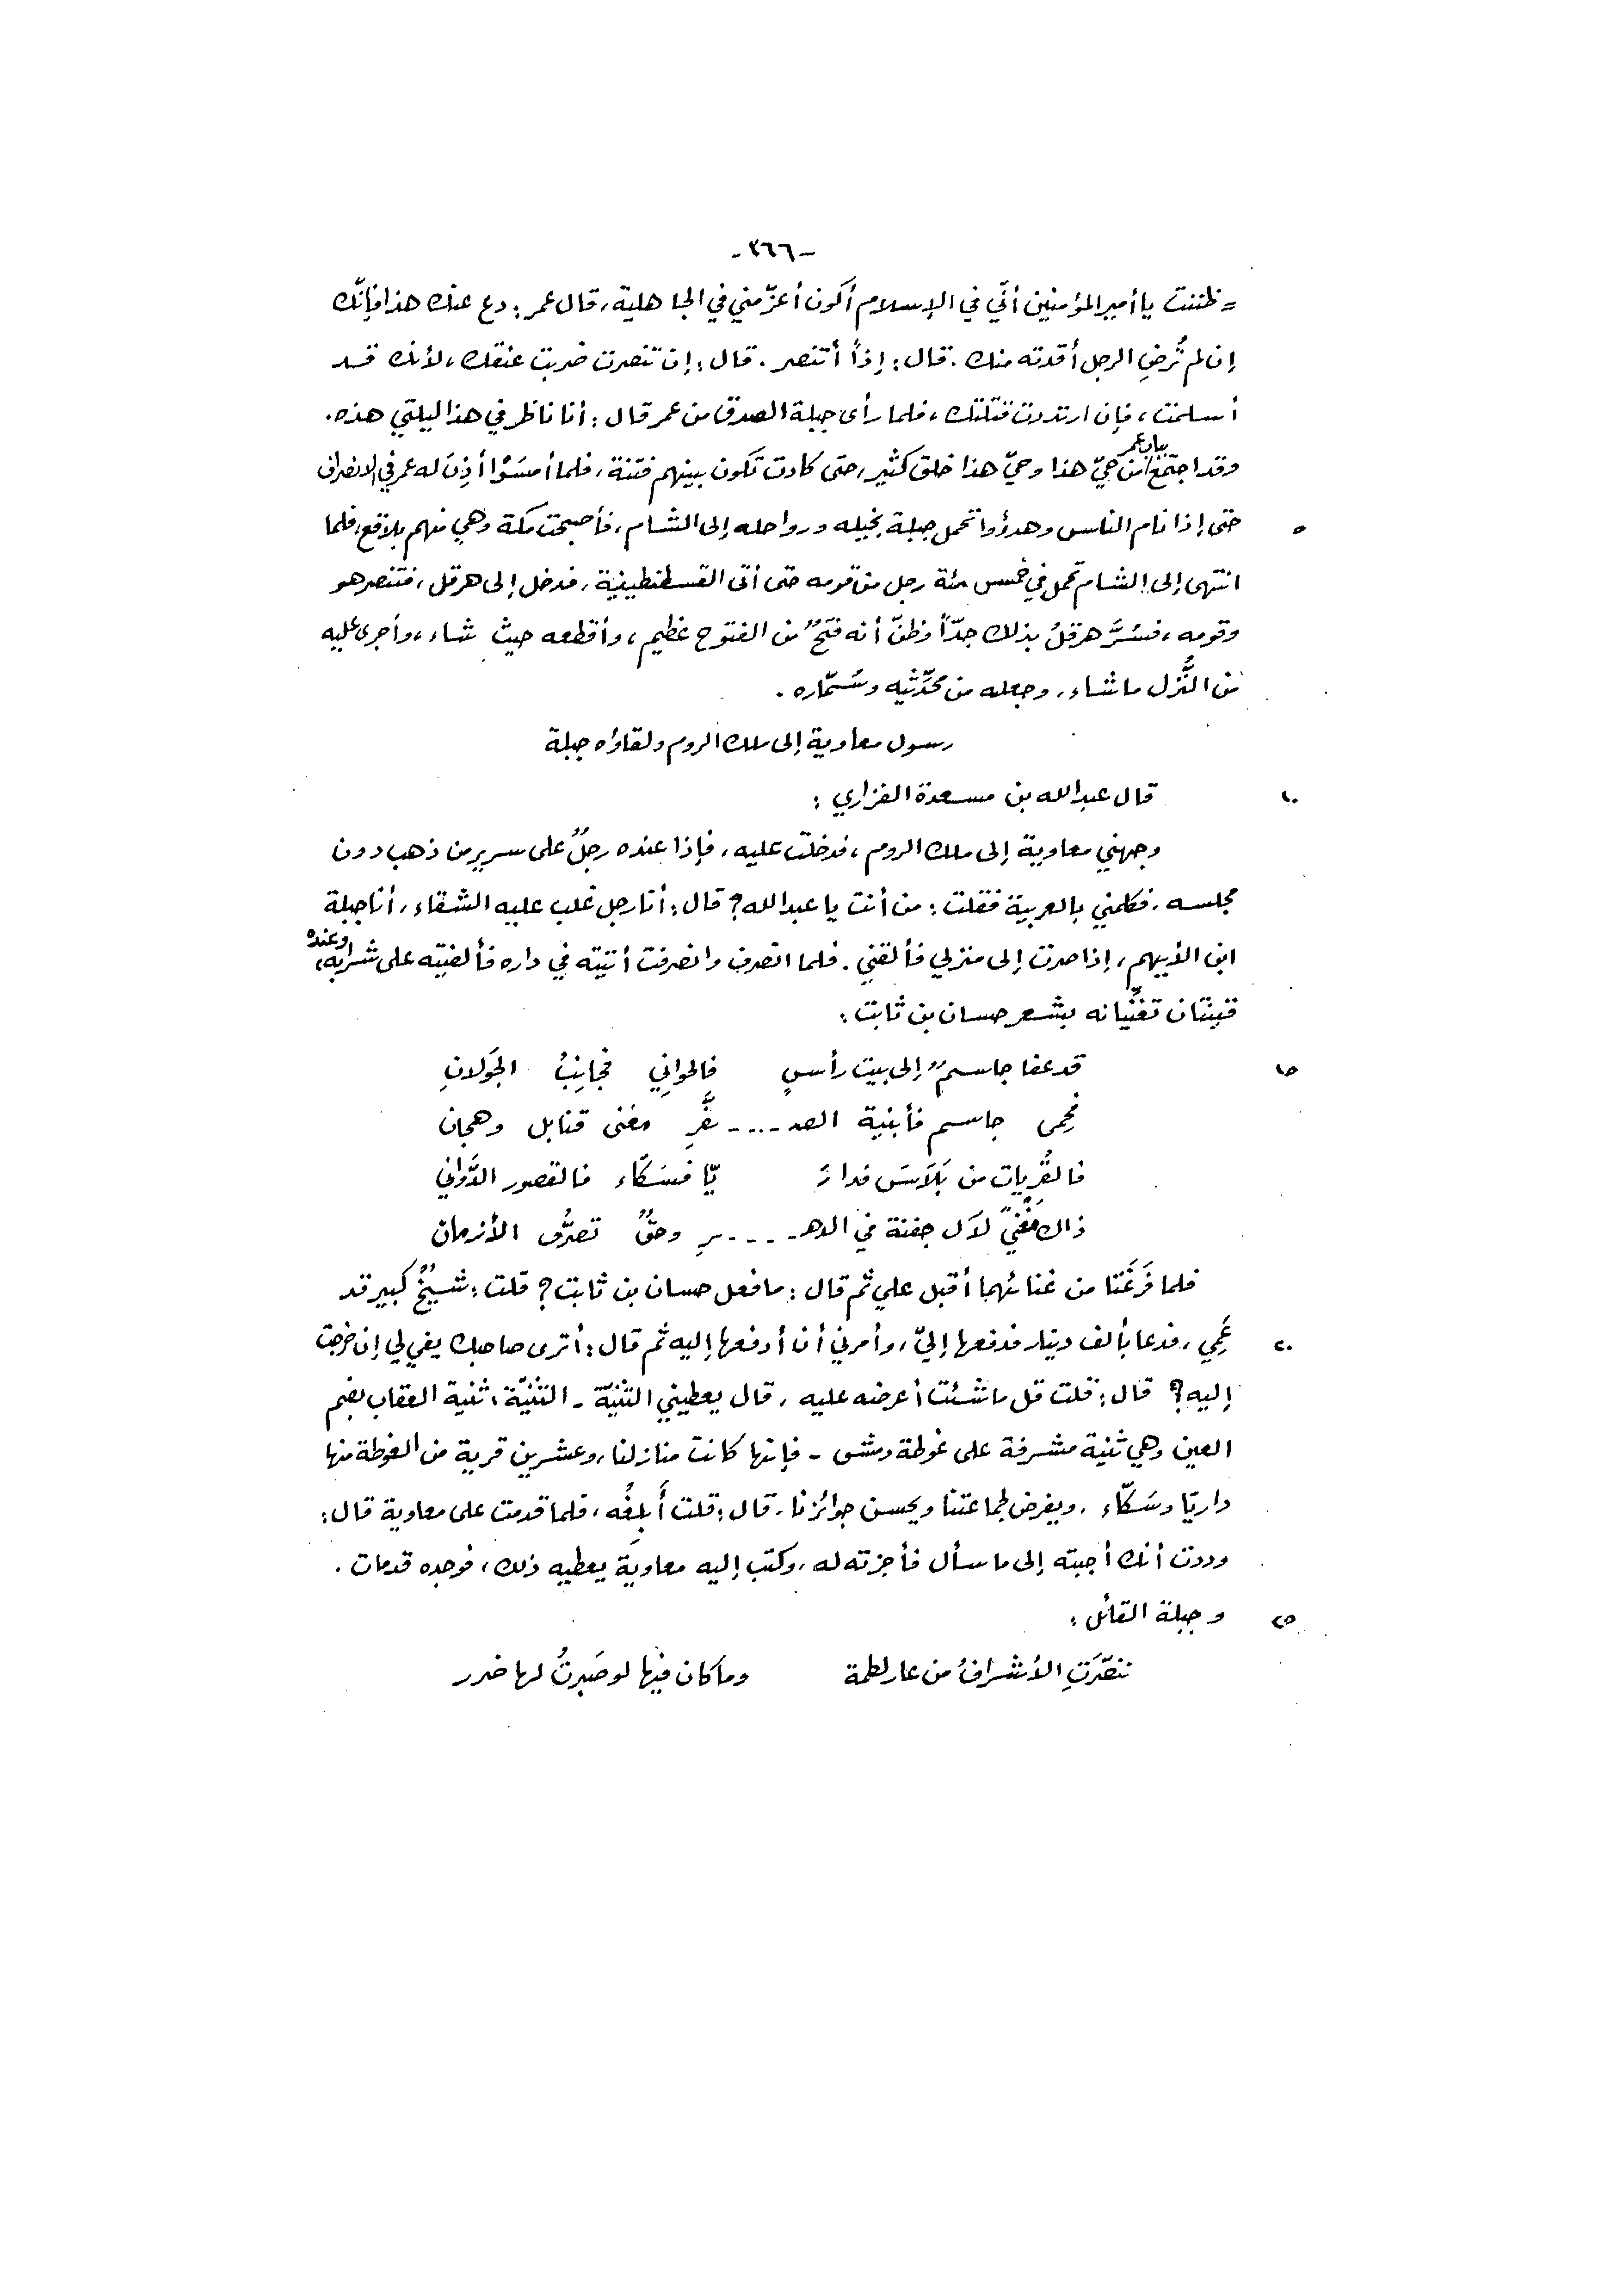 -٣٦٦-
= ظننت يا أمير المؤمنين أنّي في الإسلام أكون أعزّ مني في الجاهلية، قال عمر: دع عنك هذا فإنّك
إن لم تُرضِ الرجل أقدته منك. قال: إذاً أتنصر. قال: إن تنصرت ضربت عنقك، لأنك قد
أسلمت، فإن ارتددت قتلتك، فلما رأى جبلة الصدق من عمر قال: أنا ناظر في هذا ليلتي هذه.
وقد اجتمع بباب عمر من حيّ هذا وحيّ هذا خلق كثير، حتى كادت تكون بينهم فتنة، فلما أمسَوْا أذِنَ له عمر في الانصراف
٥ حتى إذا نام الناس وهدؤوا تحمل جبلة بخيله ورواحله إلى الشام، فأصبحت مكة وهي منهم بلاقع، فلما
انتهى إلى الشام تحمل في خمس مئة رجل من قومه حتى أتى القسطنطينية، فدخل إلى هرقل، فتنصر هو
وقومه، فسُرَّ هرقلُ بذلك جدّاً وظنّ أنه فتحٌ من الفتوح عظيم، وأقطعه حيث شاء، وأجرى عليه
من النُّزل ما شاء، وجعله من محدِّثيه وسُمّاره.
رسول معاوية إلى ملك الروم ولقاؤه جبلة
١٠ قال عبد الله بن مسعدة الفزاري:
وجهني معاوية إلى ملك الروم، فدخلت عليه، فإذا عنده رجلٌ على سرير من ذهب دون
مجلسه، فكلمني بالعربية فقلت: من أنت يا عبد الله؟ قال: أنا رجل غلب عليه الشقاء، أنا جبلة
ابن الأيهم، إذا صرت إلى منزلي فألقني. فلما انصرف وانصرفت أتيته في داره فألفيته على شرابه، وعنده
قينتان تغنِّيانه بشعر حسان بن ثابت:
١٥ قد عفا جاسمٌ إلى بيت رأسٍ فالحواني فجانِبُ الجَولانِ
فحِمى جاسم فأبنية الصـ....ـفَّرِ مغنى قنابل وهجان
فالقُرِيات من بَلَاسَ فدارَ يّا فسَكّاء فالقصور الدَّواني
ذاك مَغْنيً لآل جفنة في الدهـ....ـرِ وحقٌ تصرُّف الأزمان
فلما فَرَغَتا من غنائهما أقبل علي ثم قال: ما فعل حسان بن ثابت؟ قلت: شيخٌ كبير قد
٢٠ عَمِي، فدعا بألف دينار فدفعها إليّ، وأمرني أن أدفعها إليه ثم قال: أترى صاحبك يفي لي إن خرجت
إليه؟ قال: قلت قل ما شئت أعرضه عليه، قال يعطيني الثنيّة - الثنيّة، ثنية العقاب بضم
العين وهي ثنية مشرفة على غوطة دمشق - فإنها كانت منازلنا، وعشرين قرية من الغوطة منها
داريّا وسَكّاء، ويفرض لجماعتنا ويحسن جوائزنا. قال: قلت أُبلِغُه، فلما قدمت على معاوية قال:
وددت أنك أجبته إلى ما سأل فأجزته له، وكتب إليه معاوية يعطيه ذلك، فوجده قد مات.
٢٥ وجبلة القائل:
تنصّرَتِ الأشرافُ من عار لطمة وما كان فيها لو صَبرتُ لها ضرر